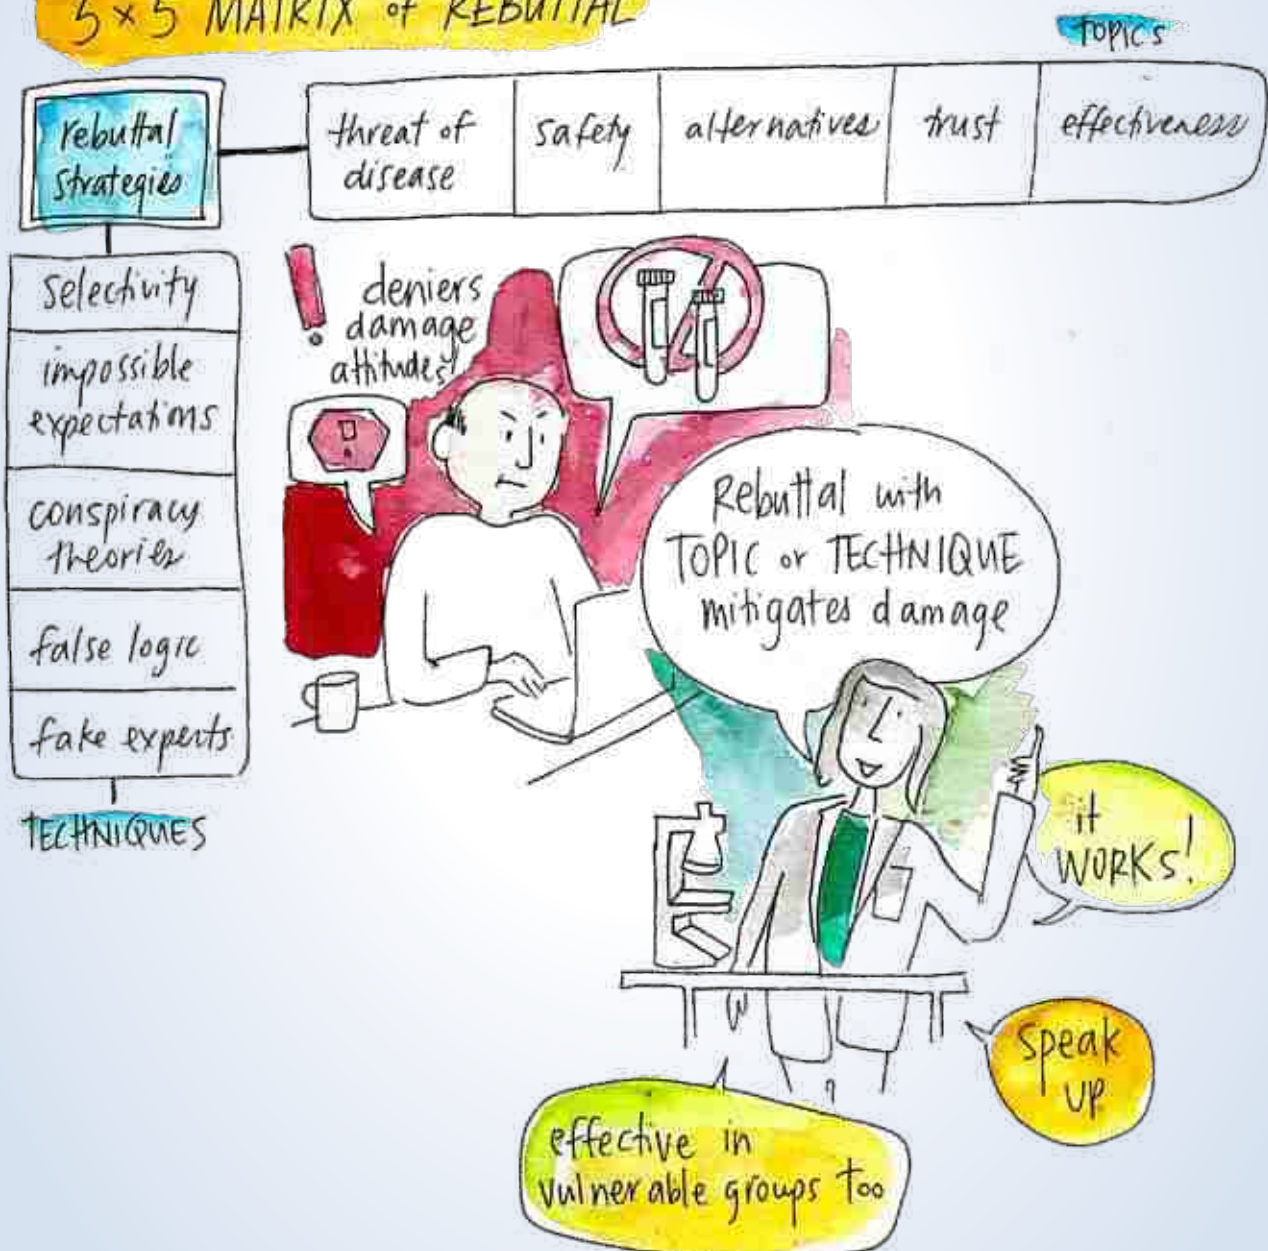 5 x 5 MATRIX of REBUTTAL
TOPICS
rebuttal
strategies
threat of
disease
safety
alternatives
trust
effectiveness
selectivity
impossible
expectations
conspiracy
theories
false logic
fake experts
TECHNIQUES
! deniers
damage
attitudes
Rebuttal with
TOPIC or TECHNIQUE
mitigates damage
it
WORKS!
speak
up
effective in
vulnerable groups too